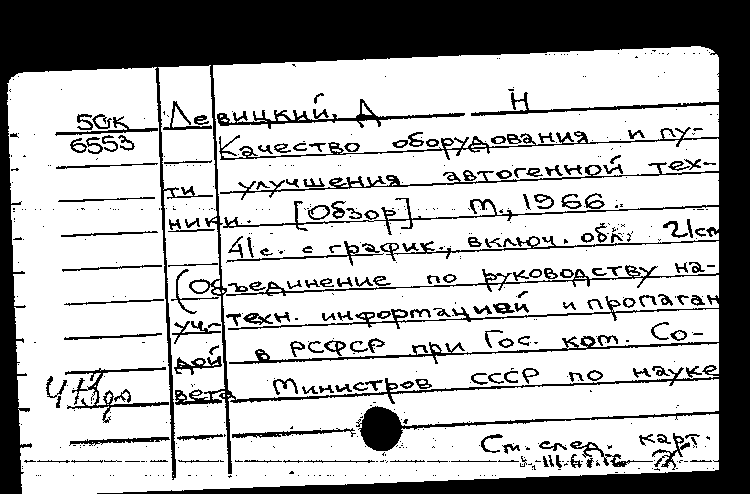 50к
6553
Левицкий, А Н
Качество оборудования и пу-
ти улучшения автогенной тех-
ники. [Обзор]. М., 1966.
41с. с график., включ. обл. 21см
(Объединение по руководству на-
уч.-техн. информацией и пропаган
дой в РСФСР при Гос. ком. Со-
вета Министров СССР по науке
См. след. карт.